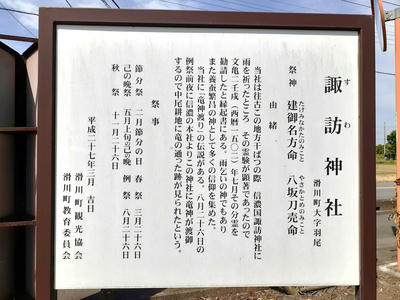 諏訪神社
すわ
滑川町大字羽尾
祭神 建御名方命 八坂刀売命
たけみなかたのみこと
やさかとめのみこと
由緒
当社は往古この地方干ばつの際、信濃国諏訪神社に
雨を祈ったところ その霊験が顕著であったので
文亀二壬戌(西暦一五〇二)年七月その分霊を
勧請したと縁起書にある。雨乞いの神でもあり
また養蚕繁昌の神として多くの信仰を集めた。
当社に「竜神渡り」の伝説がある。八月二十六日の
例祭前夜に信濃の本社よりこの神社に竜神が渡御
するので中尾耕地に竜の通った跡が見られたという。
祭事
節分祭 二月節分の日 春祭 三月二十六日
己の晩祭 五月上旬己の晩 例祭 八月二十六日
秋祭 十一月二十六日
平成二十七年三月 吉日
滑川町観光協会
滑川町教育委員会